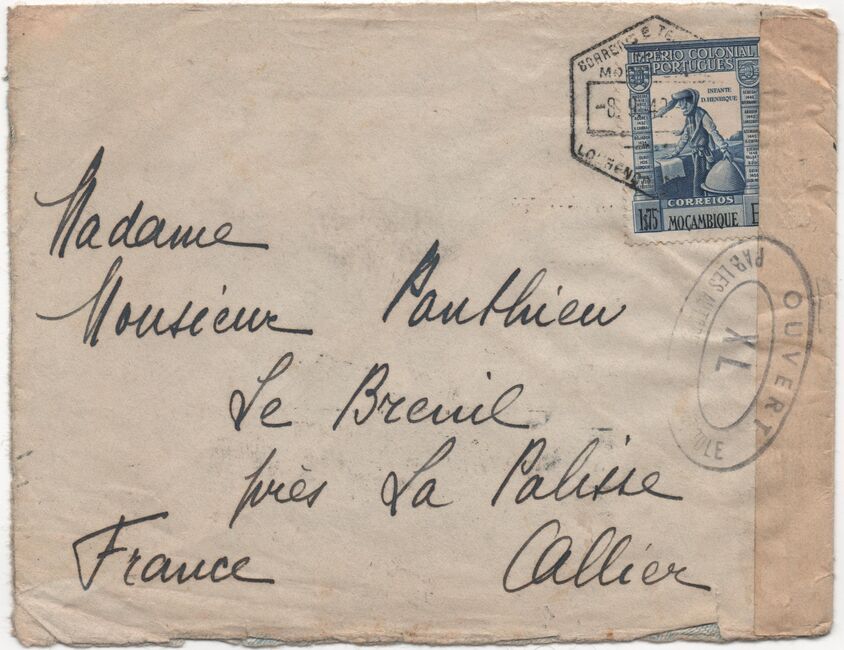 CORREIOS E TE
MO
-8. 9. 4
LOURENÇO
IMPÉRIO COLONIAL
PORTUGUÊS
INFANTE
D. HENRIQUE
CORREIOS
1$75 MOÇAMBIQUE E
Madame
Monsieur Panthieu
Le Breuil
près La Palisse
France Allier
OUVERT
PAR LES AUTOR
XL